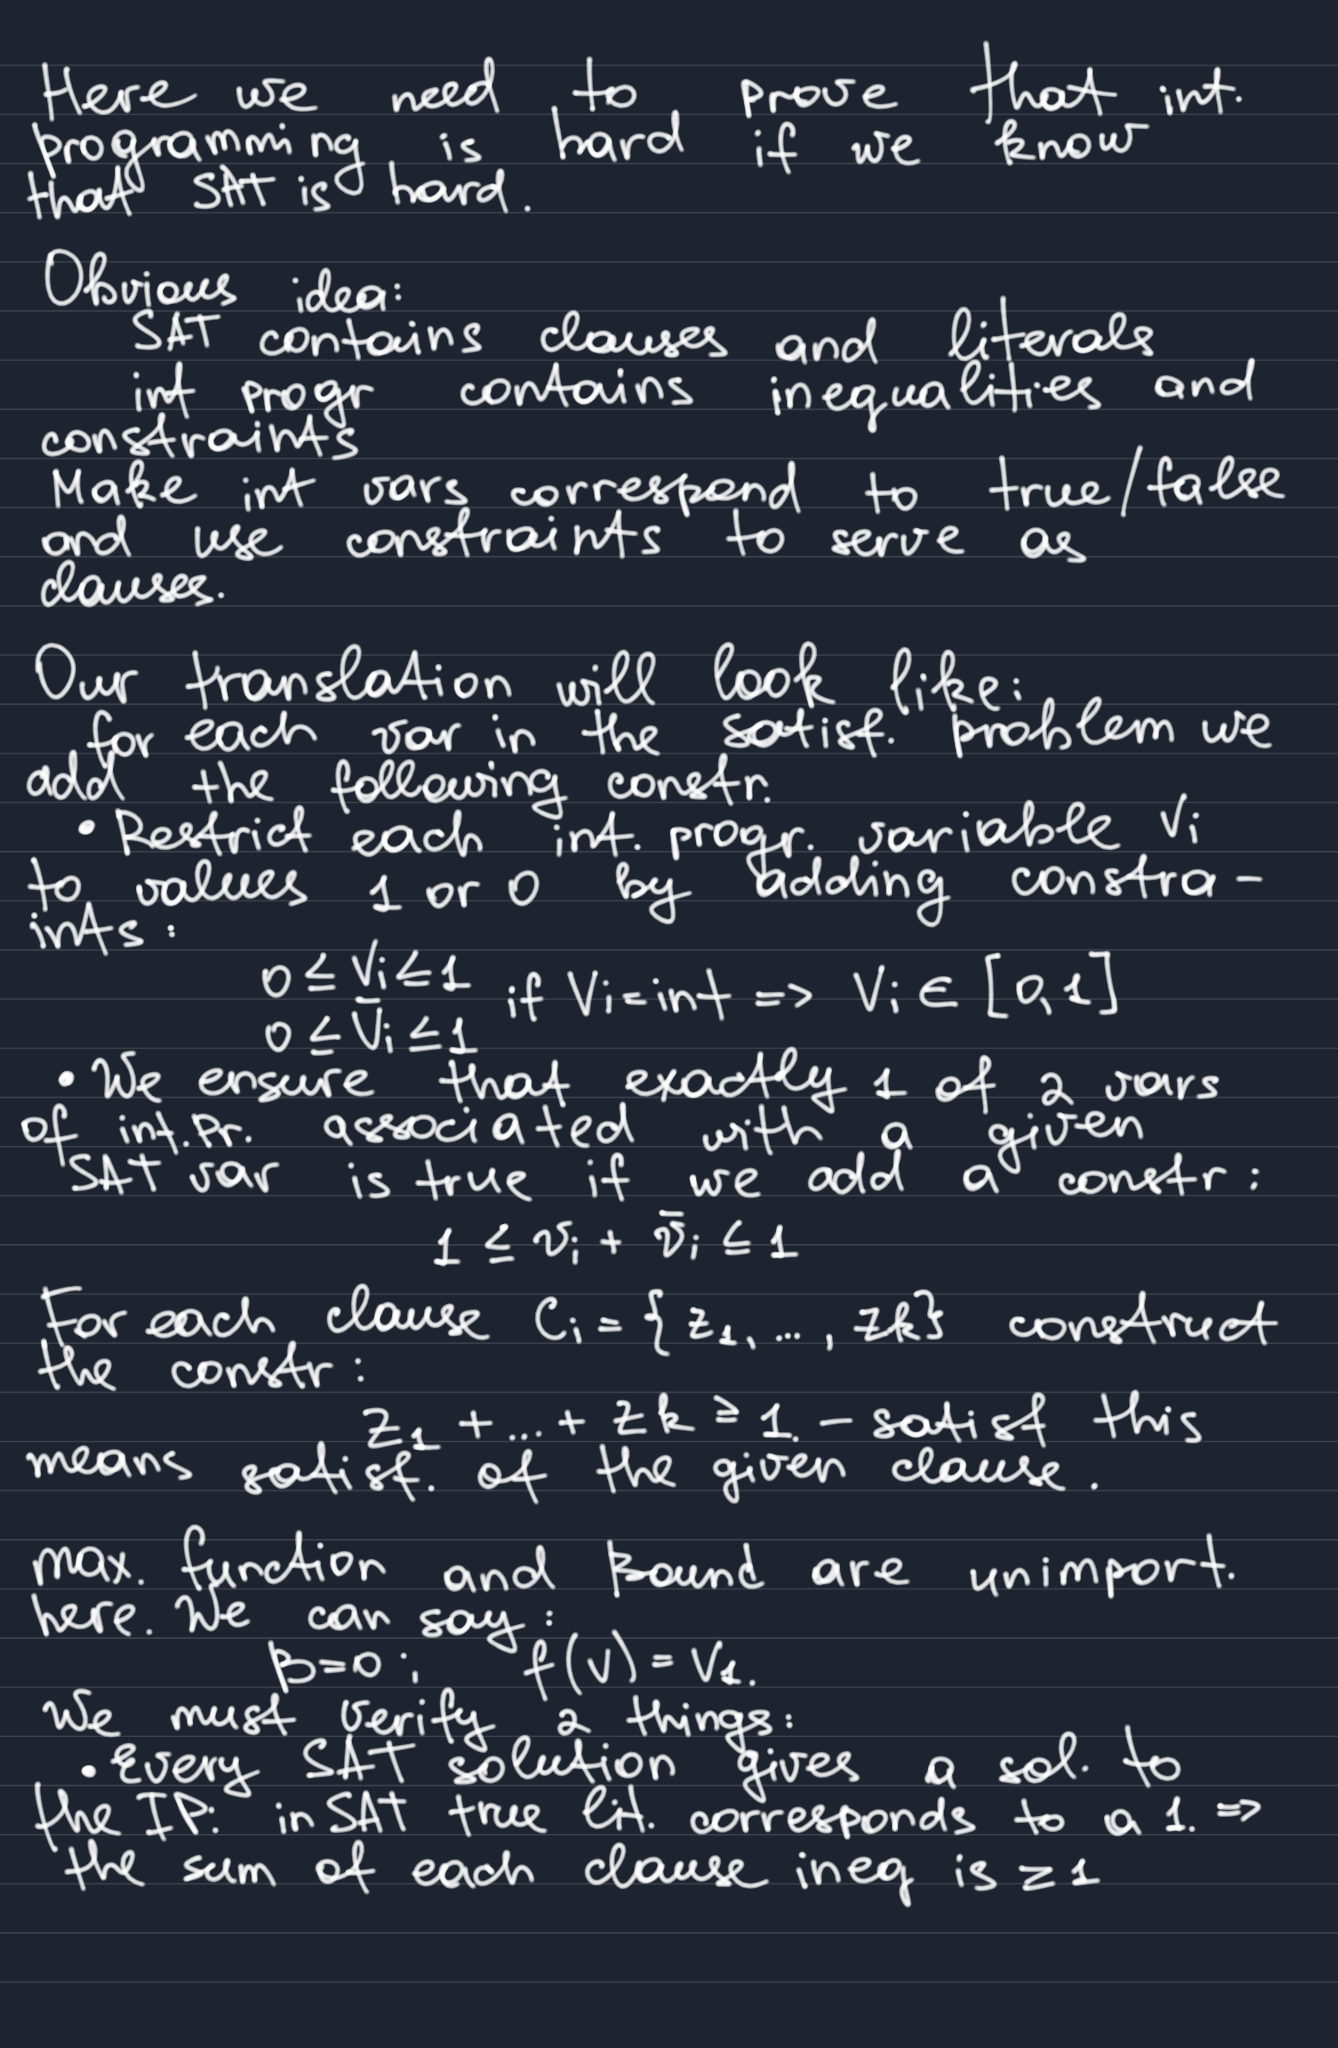 Here we need to prove that int.
programming is hard if we know
that SAT is hard.
Obvious idea:
SAT contains clauses and literals
int progr contains inequalities and
constraints
Make int vars correspond to true/false
and use constraints to serve as
clauses.
Our translation will look like:
for each var in the satisf. problem we
add the following constr.
• Restrict each int. progr. variable Vi
to values 1 or 0 by adding constra-
ints:
0 ≤ Vi ≤ 1
0 ≤ V̄i ≤ 1 if Vi = int => Vi ∈ [0,1]
• We ensure that exactly 1 of 2 vars
of int.Pr. associated with a given
SAT var is true if we add a constr:
1 ≤ vi + v̄i ≤ 1
For each clause Ci = {z1, ..., zk} construct
the constr:
z1 + ... + zk ≥ 1. - satisf this
means satisf. of the given clause.
max. function and Bound are unimport.
here. We can say:
B=0; f(v) = V1.
We must verify 2 things:
• Every SAT solution gives a sol. to
the IP: in SAT true lit. corresponds to a 1. =>
the sum of each clause ineq is ≥ 1